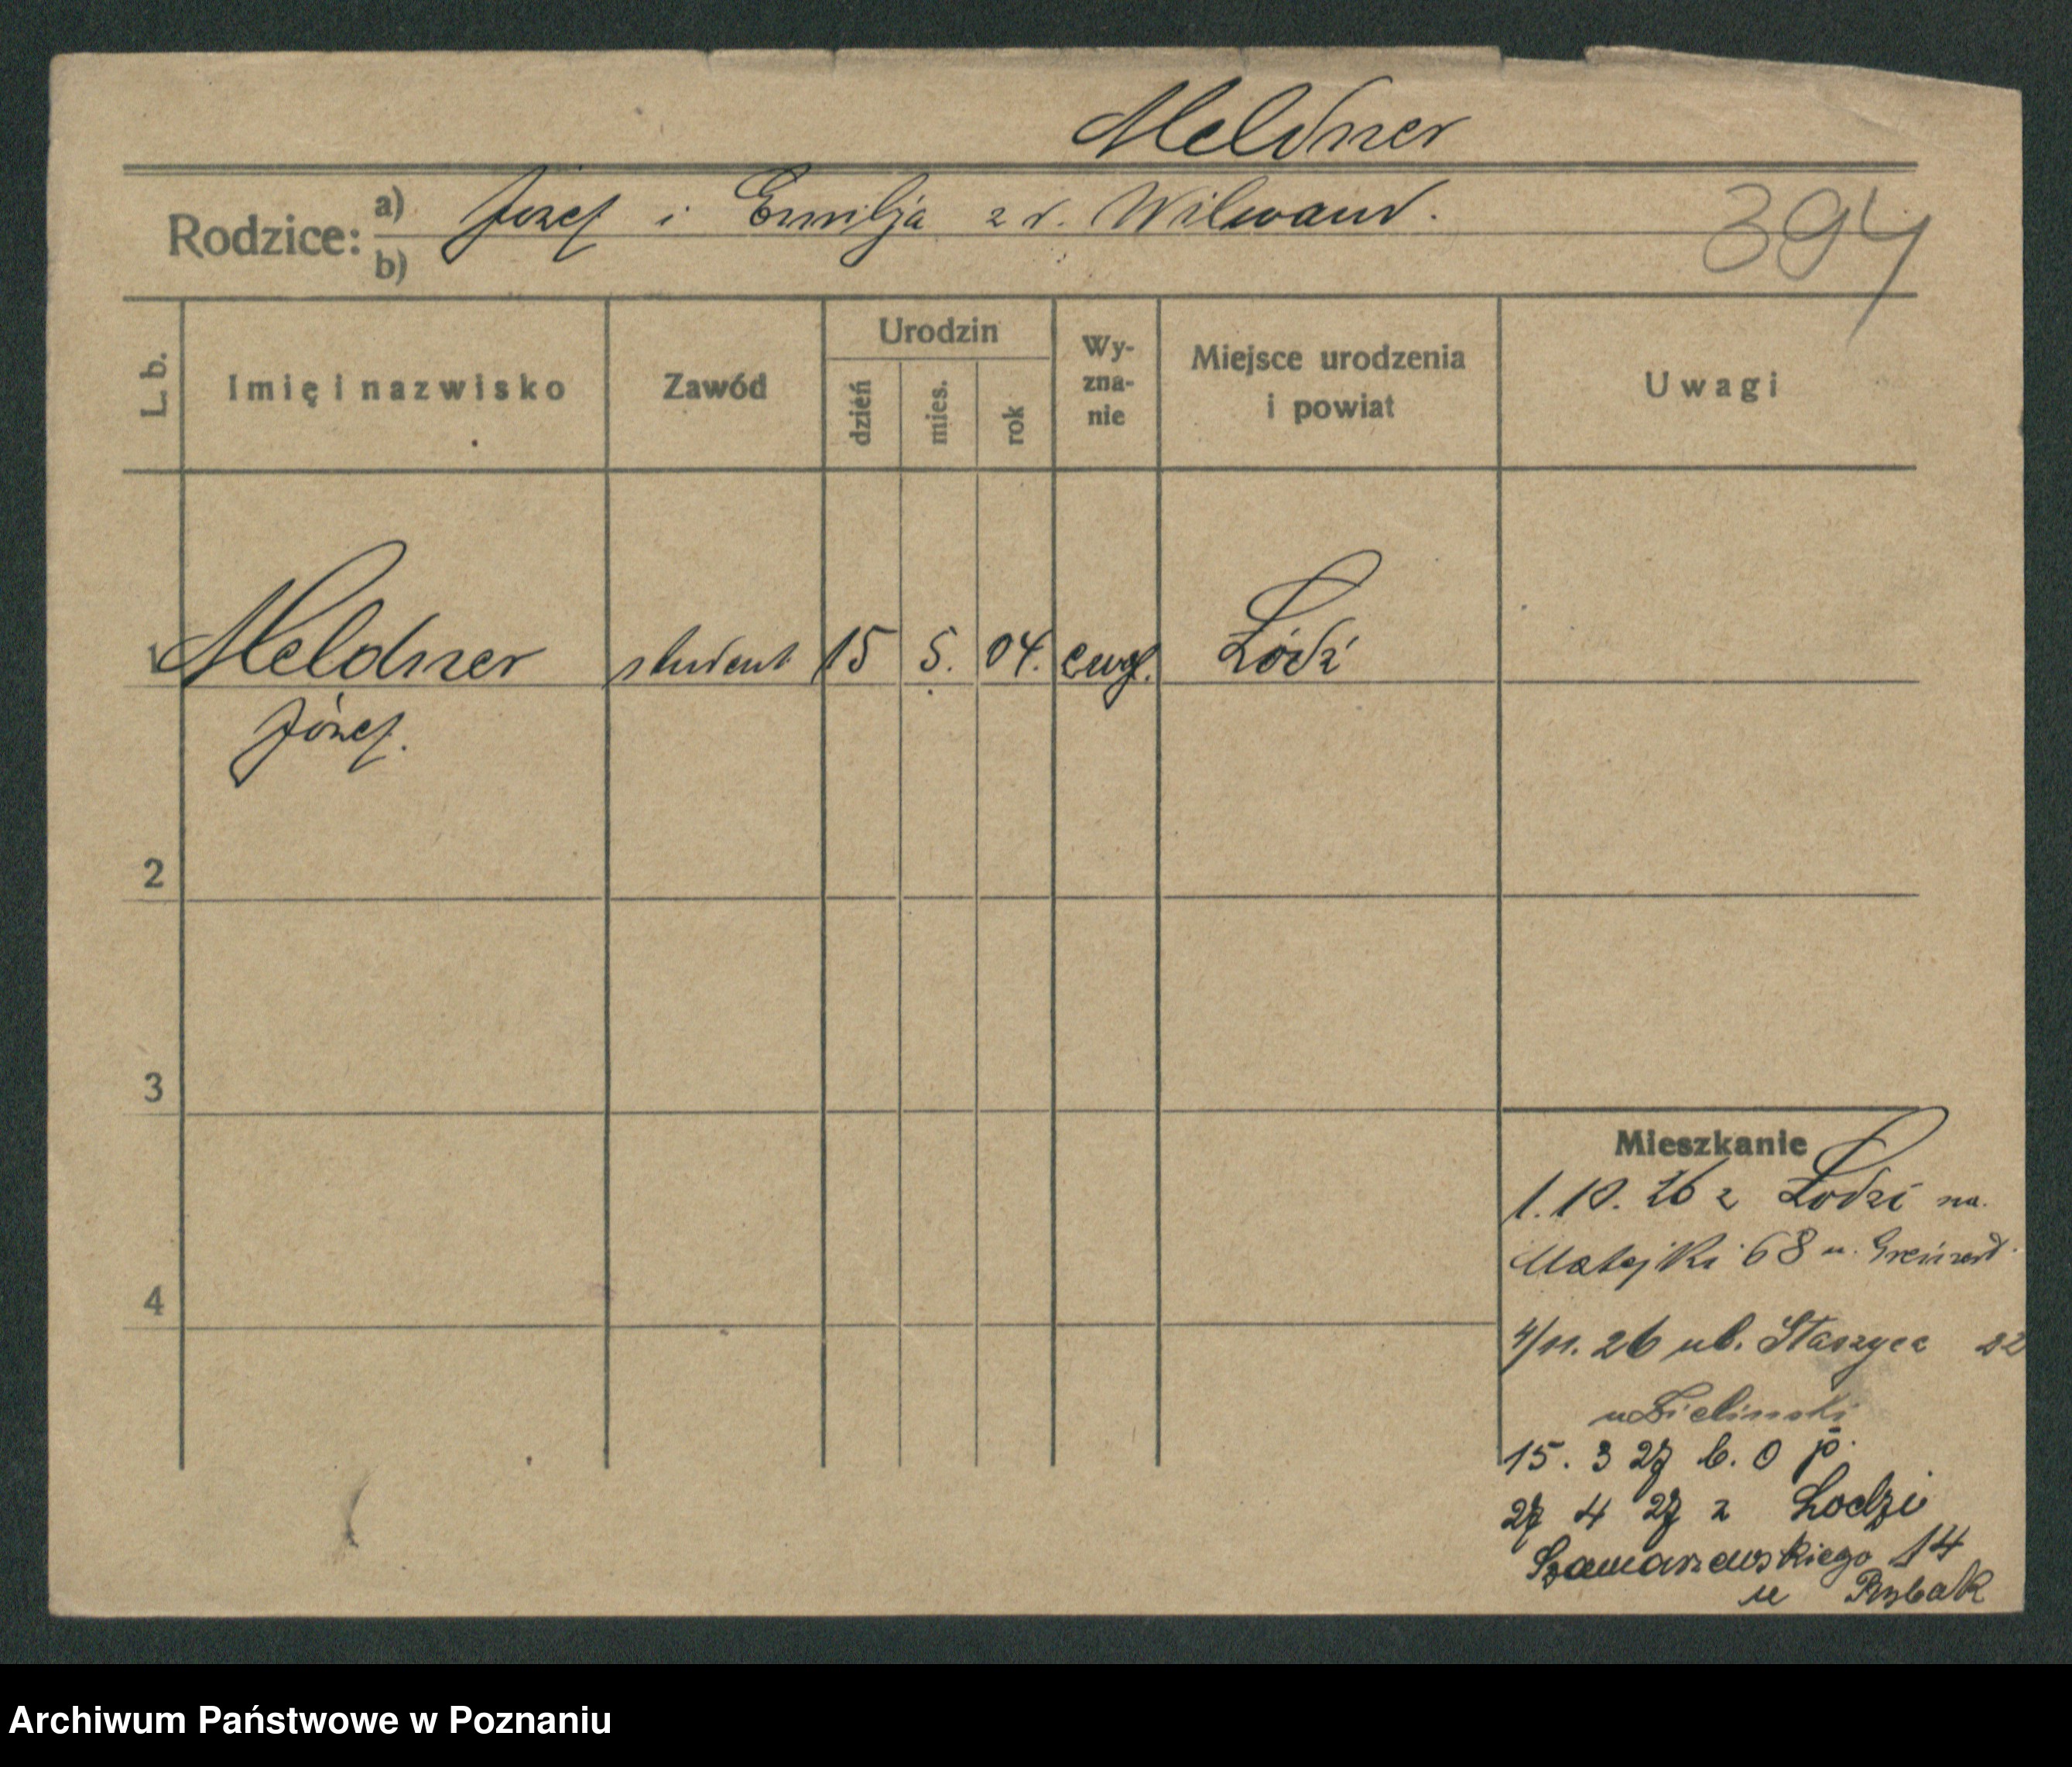 Meldner
Rodzice:
a) Józef i Emilja z d. Wilwand.
b)
394
L. b.
Imię i nazwisko
Zawód
Urodzin
dzień
mies.
rok
Wy-
zna-
nie
Miejsce urodzenia
i powiat
Uwagi
1 Meldner student 15 5. 04. ewgl. Łódź
Józef.
2
3
4
Mieszkanie
1.10.26 z Łodzi na.
Matejki 68 u.
4/11. 26 ul. Staszyca 22
u Zielinski
15. 3 27 b. o p.
27 4 27 z Łodzi
Szamarzewskiego 14
u Rybak
Archiwum Państwowe w Poznaniu